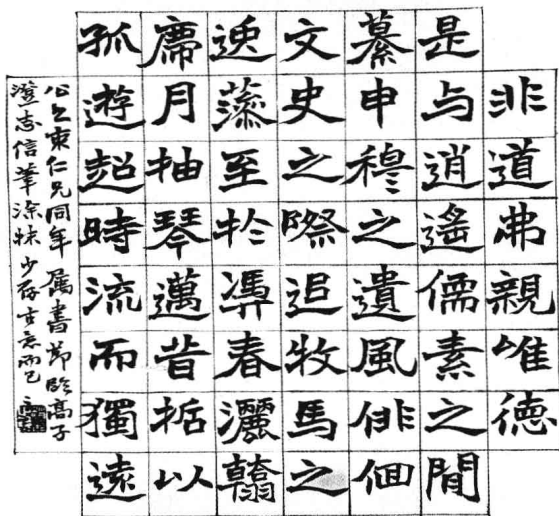 非道弗親唯德
是与逍遙儒素之閒
纂申穆之遺風俳佪
文史之際追牧馬之
逸藻至於馮春灑翰
席月抽琴邁昔哲以
孤遊超時流而獨遠
仁兄同年 属書節臨高子
澄志信筆塗抹少存古意而已